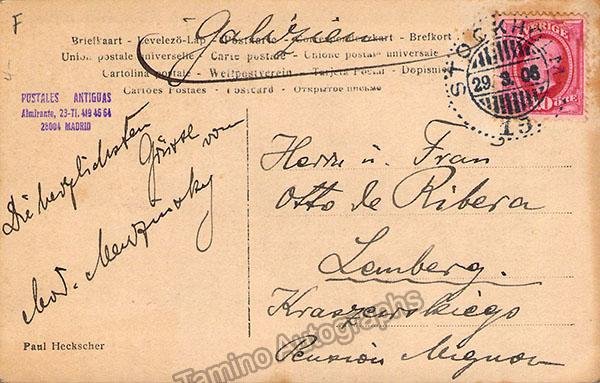 F
Galizien
Briefkaart - Levelező-Lap - Postkarte - Korrespondenzkart - Brefkort
Union postale universelle - Carte postale - Unione postale universale
Cartolina postale - Weltpostverein - Tarjeta Postal - Dopisni
Cartões Postaes - Postcard - Открытое письмо
STOCKHOLM
29.3.06
15
SVERIGE
10 ÖRE
POSTALES ANTIGUAS
Almirante, 23-Tl. 419 46 64
28004 MADRID
Die herzlichsten
Grüsse von
Herrn u. Frau
Otto de Ribera
Lemberg.
Kraszewskiego
Pension Mignon
Paul Heckscher
Tamino Autographs